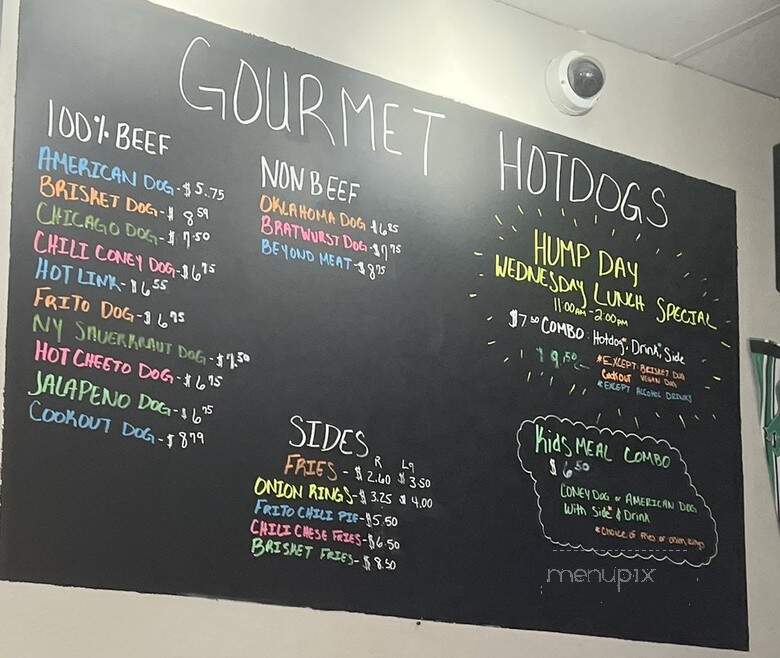 GOURMET HOTDOGS
100% BEEF
AMERICAN DOG - $5.75
BRISKET DOG - $8.59
CHICAGO DOG - $7.50
CHILI CONEY DOG - $6.75
HOT LINK - $6.55
FRITO DOG - $6.75
NY SAUERKRAUT DOG - $7.50
HOT CHEETO DOG - $6.75
JALAPENO DOG - $6.75
COOKOUT DOG - $8.79
NON BEEF
OKLAHOMA DOG $6.25
BRATWURST DOG - $7.75
BEYOND MEAT - $8.75
SIDES
R Lg
FRIES - $2.60 $3.50
ONION RINGS - $3.25 $4.00
FRITO CHILI PIE - $5.50
CHILI CHESE FRIES - $6.50
BRISKET FRIES - $8.50
HUMP DAY
WEDNESDAY LUNCH SPECIAL
11:00AM - 2:00PM
$7.50 COMBO: Hotdog*, Drink*, Side
$9.50 *EXCEPT: BRISKET DOG
COOKOUT VEGAN DOG
*EXCEPT ALCOHOL DRINKS
Kids MEAL COMBO
$6.50
CONEY DOG or AMERICAN DOG
With Side* & Drink
*Choice of fries or onion rings
menupix